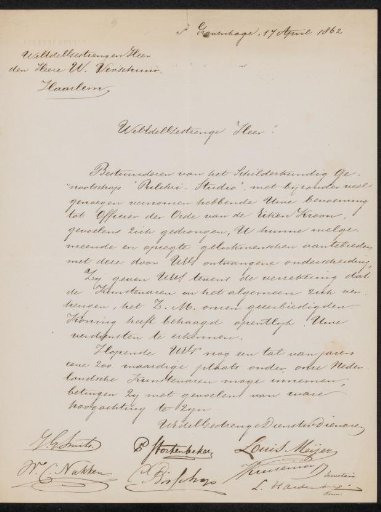 's Gravenhage, 17 April 1862
WelEdelGestrengen Heer
den Heere W. Verschuur
Haarlem
WelEdelGestrenge Heer!
Bestuurderen van het Schilderkundig Ge-
nootschap "Pulchri Studio", met bijzonder veel
genoegen vernomen hebbende Uwe benoeming
tot Officier der Orde van de Eiken Kroon,
gevoelen zich gedrongen, U hunne welge-
meende en opregte gelukwenschen aantebieden
met deze door UEG ontvangene onderscheiding.
Zij geven UEG tevens de verzekering dat
de Kunstenaren in het algemeen zich ver-
heugen, het Z. M. onzen geëerbiedigden
Koning heeft behaagd openlijk Uwe
verdiensten te erkennen.
Hopende UEG nog een tal van jaren
eene zoo waardige plaats onder onze Neder-
landsche Kunstenaren moge innemen,
betuigen zij met gevoelen van ware
hoogachting te zijn
UwEdelGestrenge Dienstw. Dienaren
J. G. Smits
P. Stortenbeker
Louis Meijer
W. C. Nakken
C. Bisschop
L. Hardenberg